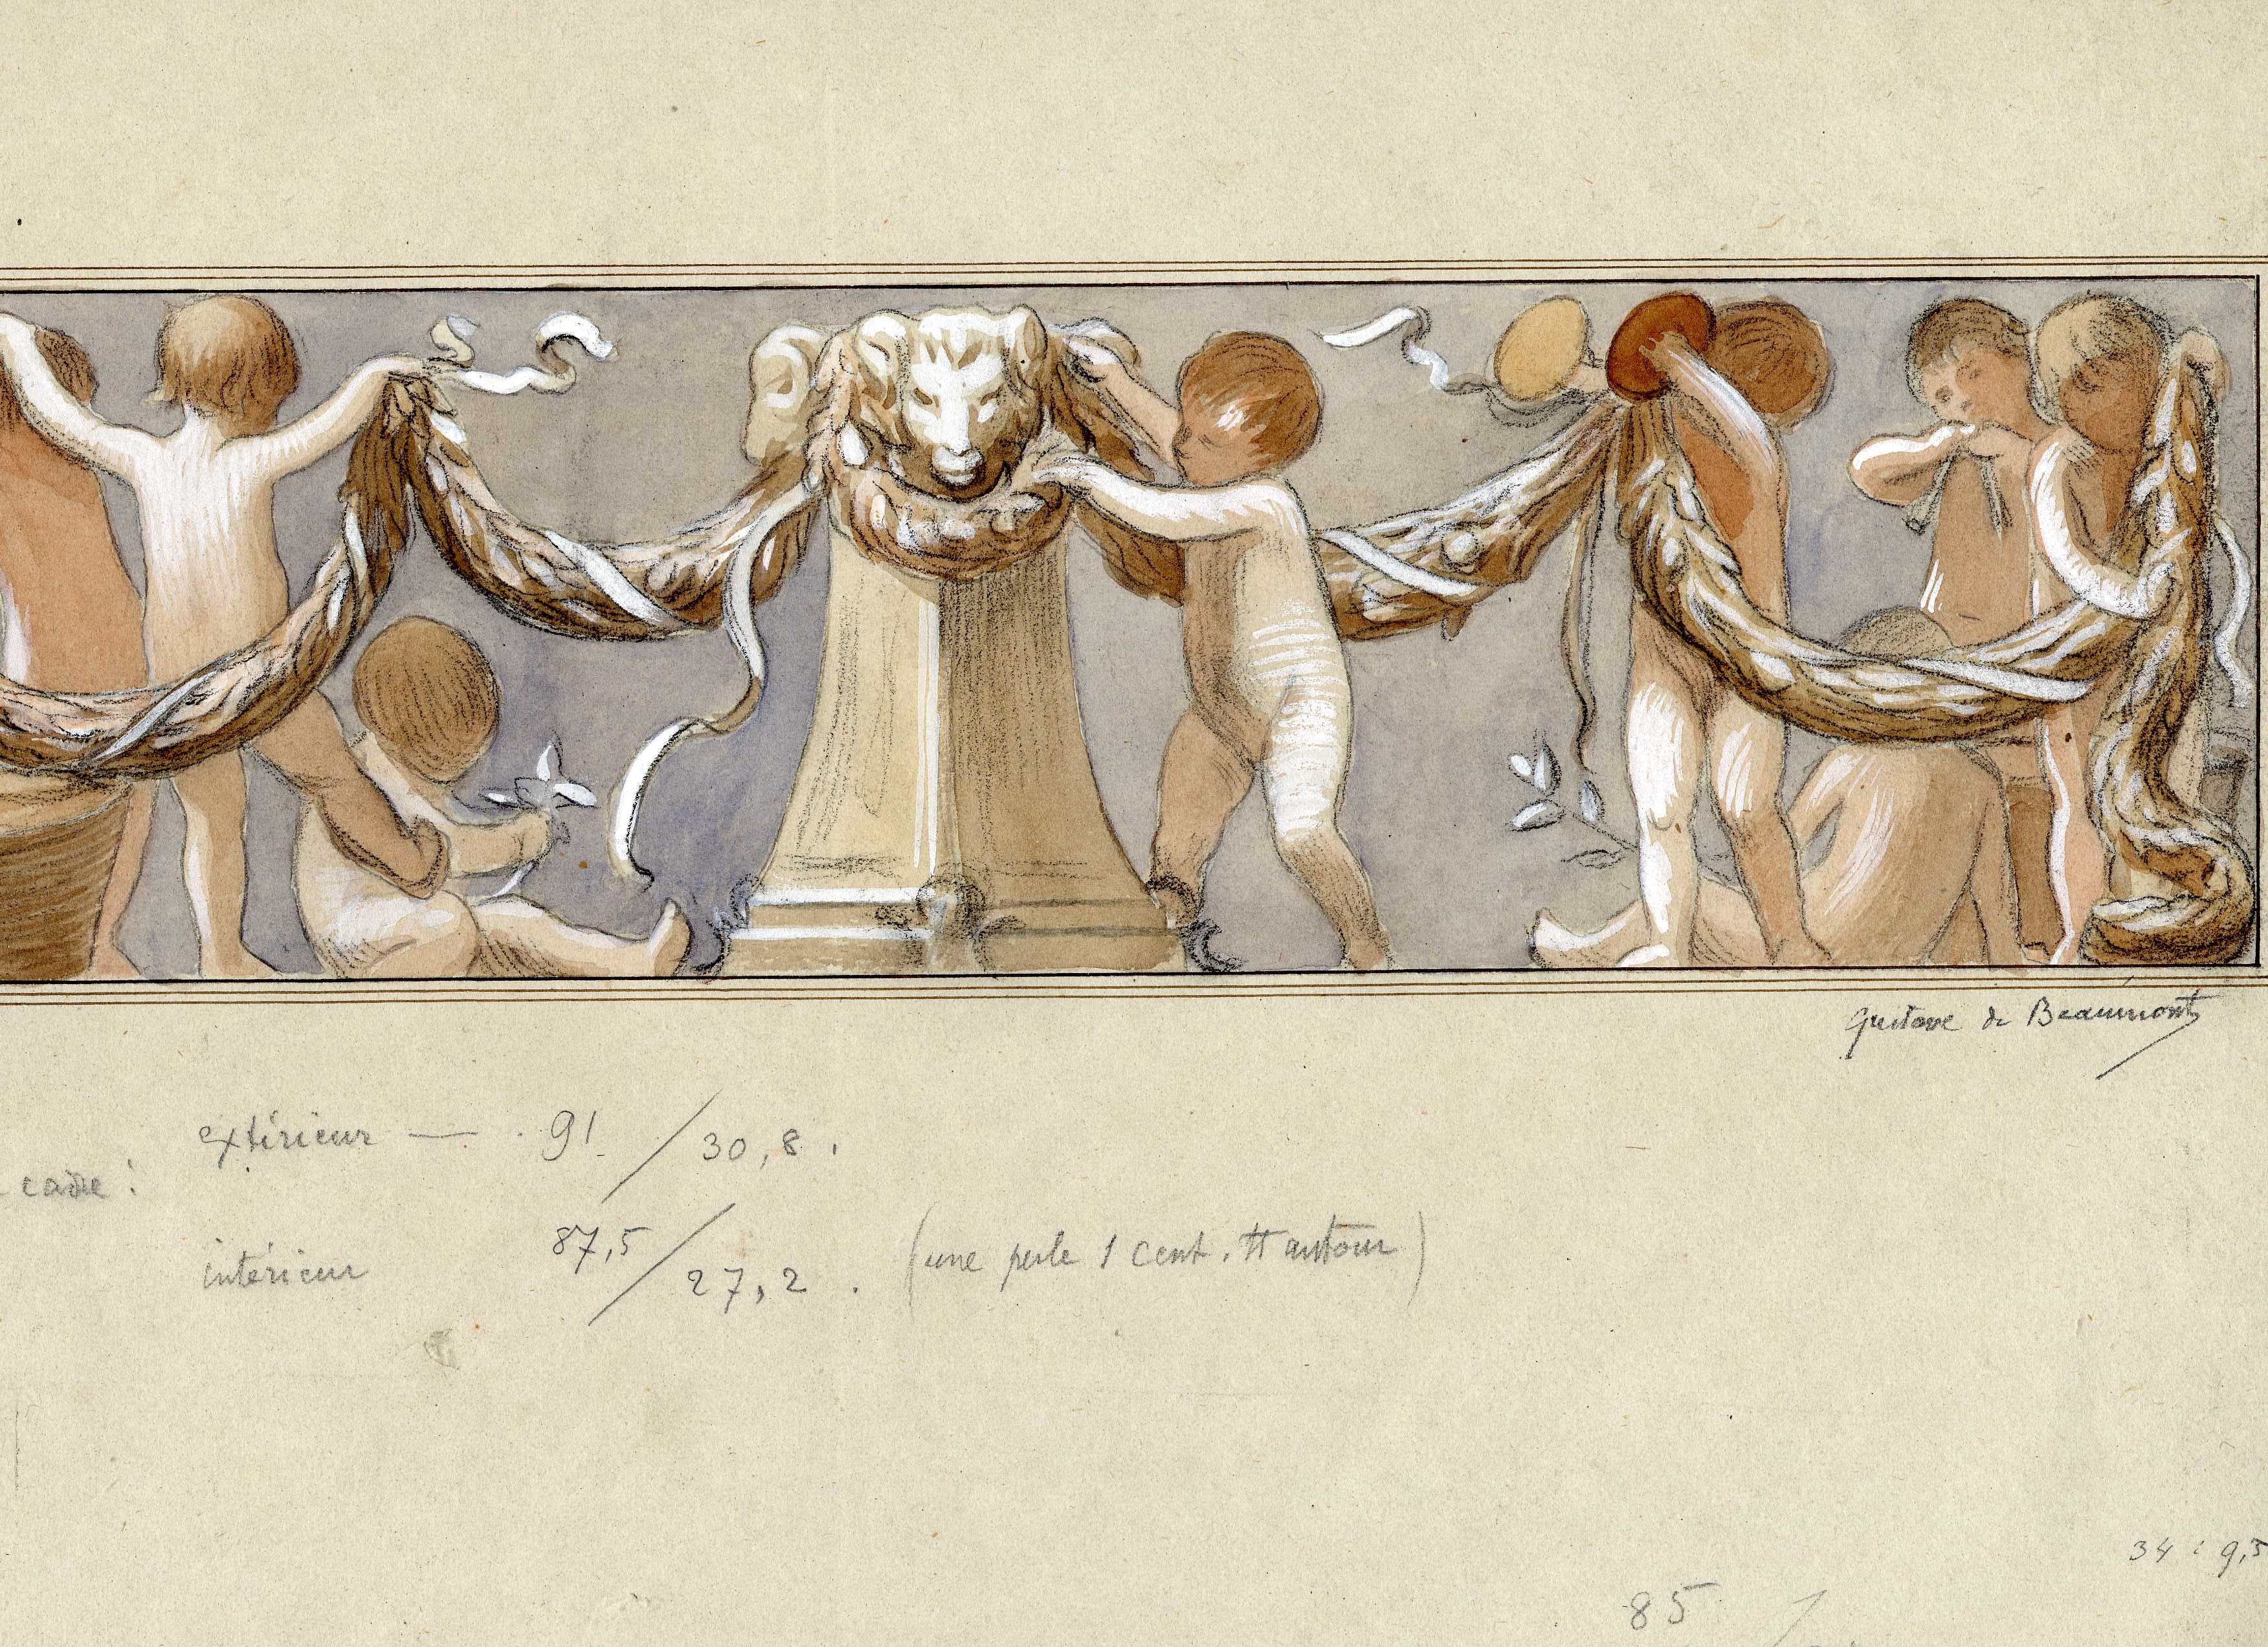 Gustave de Beaumont
extérieur — 91 / 30,8 .
cadre :
intérieur 87,5 / 27,2 . (une perle 1 cent. tt autour)
34 : 9,5
85 /